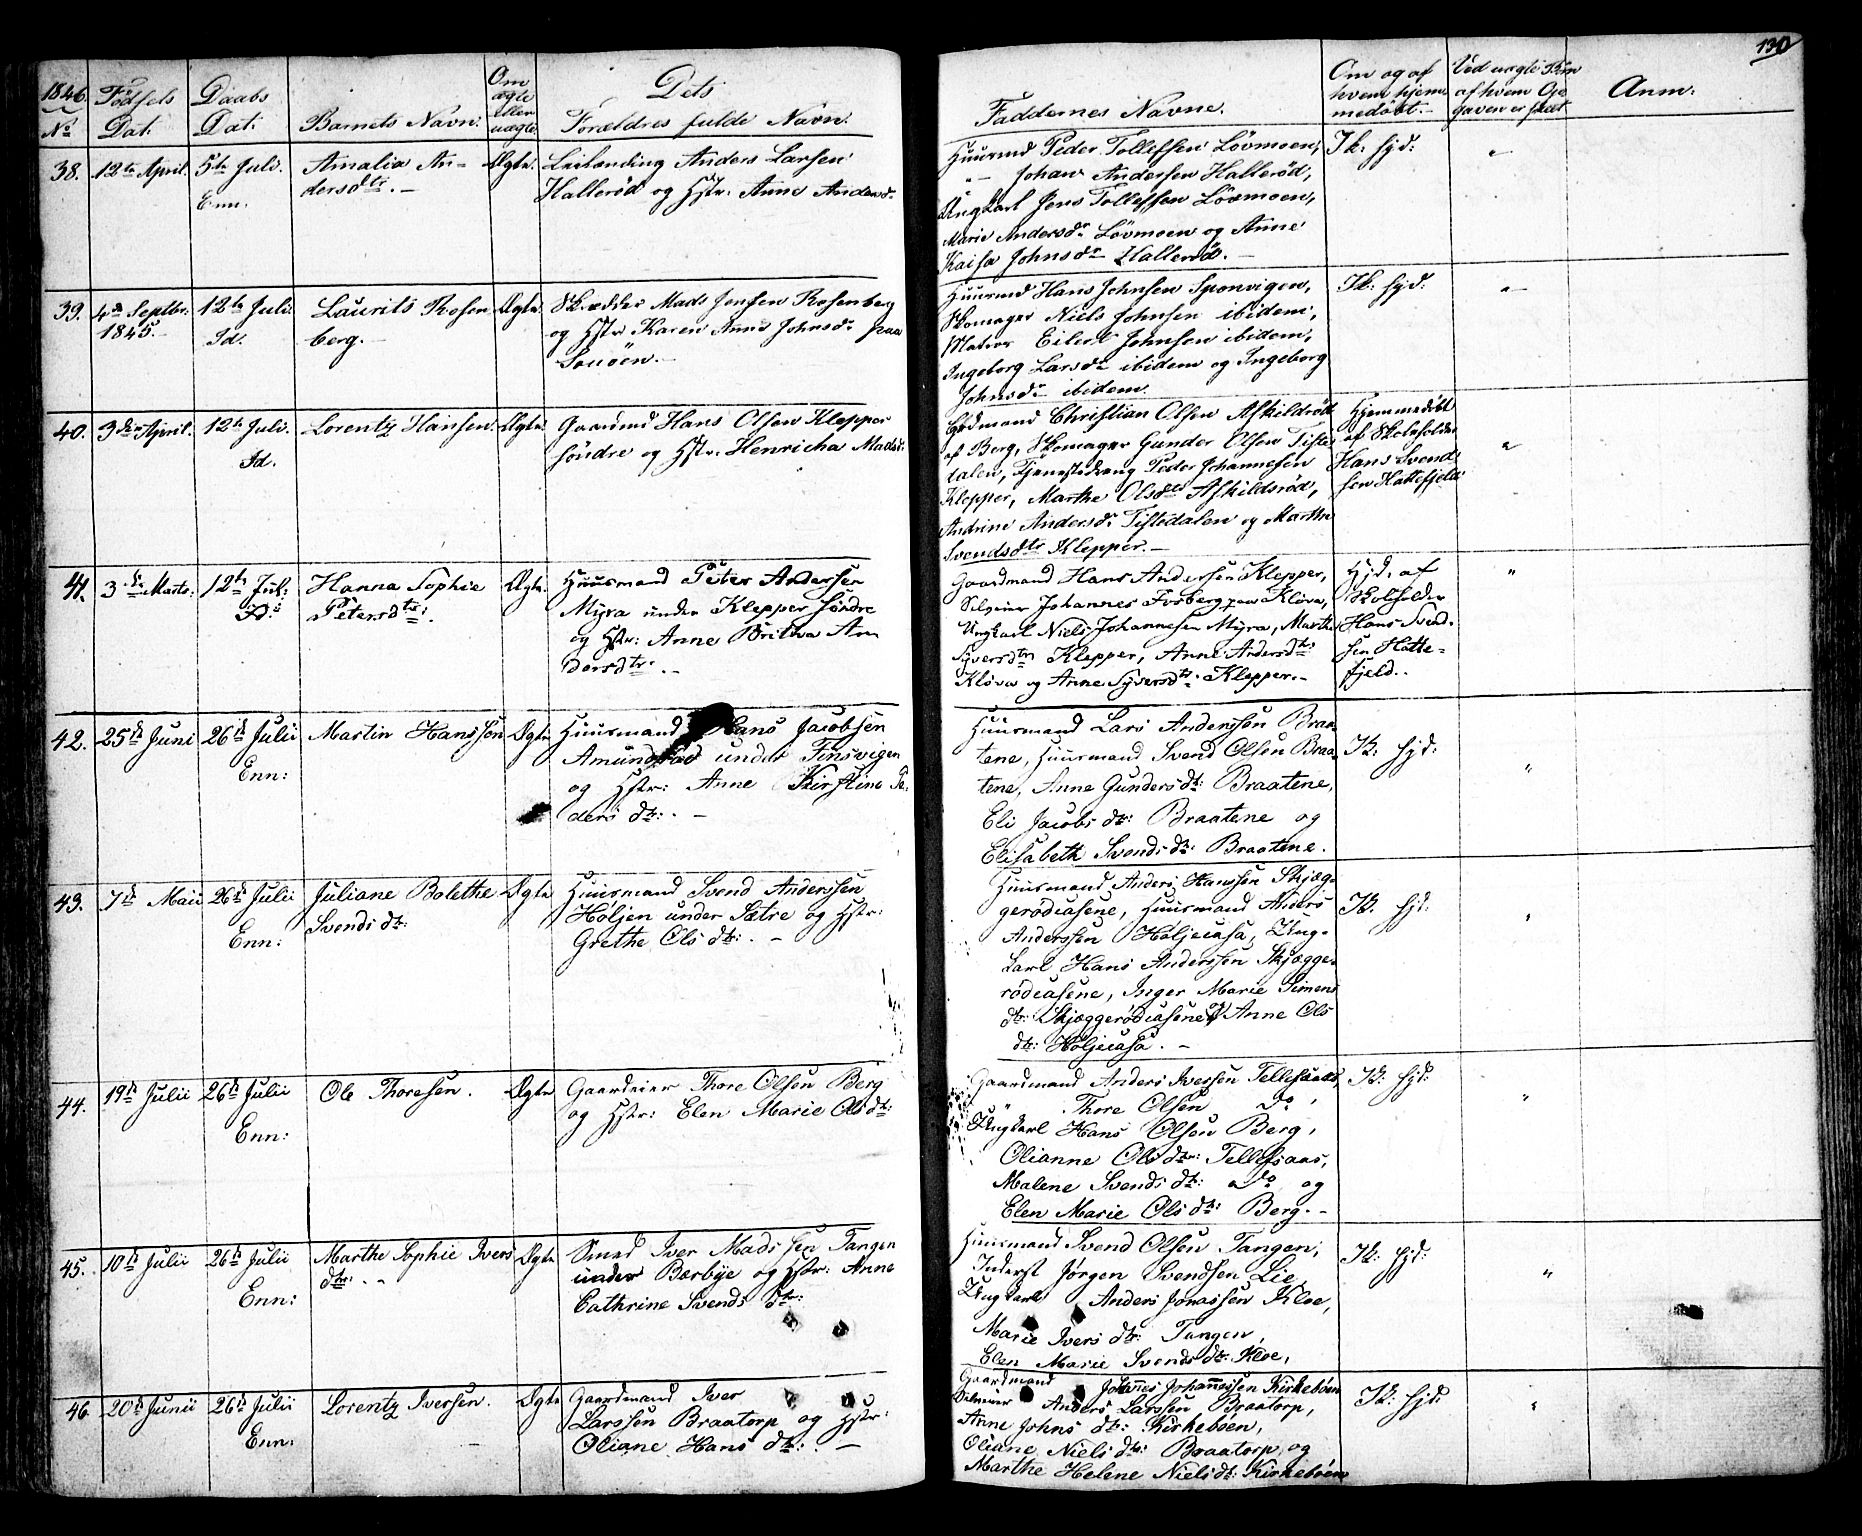 130
1846.
No
Fødsels
Dat:
Daabs
Dat:
Barnets Navn.
Om
ægte
eller
uægte
Dets
Forældres fulde Navn.
Faddernes Navne.
Om og af
hvem hjem-
medøbt.-
Ved uægte Børn
af hvem Op-
gaven er skeet
Anm:
38. 12te April. 5te Juli. Enn.
Amalia An-
dersdtr. -
Ægte.
Leilænding Anders Larsen
Hallerød og Hstr: Anne Andersdr
Huusmd Peder Tollefsen Lövmoen,
" - Johan Andersen Hallerød,
Ungkarl Jens Tollefsen Lövmoen,
Marie Andersdr Lövmoen og Anne
Kaisa Johnsdr Hallerød. -
Ik: hjd: "
39. 4de Septbr. 1845.- 12te Juli. Id.
Laurits Rosen
berg. -
Ægte.
Skrædder Mads Jensen Rosenberg
og Hstr Karen Anne Johnsdr paa
Souöen. -
Huusmd Hans Johnsen Sponvigen,
Skomager Niels Johnsen ibidem,
Matros Eilert Johnsen ibidem,
Ingeborg Larsdr ibidem og Ingeborg
Johnsdr ibidem.
Ik: hjd. "
40. 3die April. 12te Juli. Id.
Lorentz Hansen.
Ægte.
Gaardmd Hans Olsen Klepper
söndre og Hstr. Henricha Madsd.
Gdmand Christian Olsen Askildröd
af Berg, Skomager Gunder Olsen Tiste
dalen, Tjenestedreng Peder Johannesen
Klepper, Marthe Olsdtr Askildsrød,
Andrine Andersdr Tistedalen og Marthe
Svendsdtr Klepper. -
Hjemmedöbt
af Skoleholder
Hans Svend
sen Hattefjeld "
41. 3die Marts: 12te Jul: Id:
Hanna Sophie
Petersdtr:
Ægte.
Huusmand Peter Andersen
Myra under Klepper söndre
og Hstr: Anne Britha An
dersdtr: -
Gaardmand Hans Andersen Klepper,
Selveier Johannes Forberg paa Klöva,
Ungkarl Niels Johannesen Myra, Marthe
Syversdtr Klepper, Anne Andersdtr
Klöva og Anne Syversdtr: Klepper. -
Hjd. af
Skoleholder
Hans Svend-
sen Hatte-
fjeld. "
42. 25de Juni 26de Julii Enn:
Martin Hanssen
Ægte
Huusmand Hans Jacobsen
under Finsvigen
og Hstr: Anne Kirstine Pe-
ders dtr: . -
Huusmand Lars Anderssen Braa-
tene, Huusmand Svend Olsen Braa-
tene, Anne Gunders dtr: Braatene,
Eli Jacobs dtr: Braatene og
Elisabeth Svends dtr: Braatene.
Ik: hjd: "
43. 7de Maii 26de Julii Enn:
Juliane Bolethe
Svends dtr:
Ægte
Huusmand Svend Anderssen
Höljen under Sætre og Hstr:
Grethe Ols dtr: . -
Huusmand Anders Hanssen Skjæg-
gerödeasene, Huusmand Anders
Anderssen Höljecasa, Ung-
karl Hans Anderssen Skjægge-
rödeasene, Inger Marie Simens
dtr: Skjæggerödeasene og Anne Ols
dtr: Höljecasa. -
Ik: hjd: "
44. 19de Julii 26de Julii Enn:
Ole Thoresen.
Ægte
Gaardeier Thore Olsen Berg
og Hstr: Elen Marie Ols dtr:
Gaardmand Anders Iversen Tellefsaas,
" Thore Olsen do ,
Ungkarl Hans Olsen Berg,
Olianne Ols dtr: Tellefsaas,
Malene Svends dtr: do og
Elen Marie Ols dtr: Berg. -
Ik: hjd: "
45. 10de Julii 26de Julii Enn:
Marthe Sophie Ivers
dtr: . -
Ægte
Smed Iver Madssen Tangen
under Bærbye og Hstr: Anne
Cathrine Svends dtr:
Huusmand Svend Olsen Tangen,
Inderst Jørgen Svendsen Lie,
Ungkarl Anders Jonassen Kloe,
Marie Ivers dtr: Tangen,
Elen Marie Svends dtr: Kloe,
Ik: hjd: "
46 20de Junii 26de Julii Enn:
Lorentz Iversen.
Ægte
Gaardmand Iver
Larssen Braatorp og Hstr:
Oliane Hans dtr: . -
Gaardmand Johannes Johannessen Kirkebøen
Selveier Anders Larssen Braatorp,
Anne Johns dtr: Kirkebøen,
Oliane Niels dtr: Braatorp og
Marthe Helene Niels dtr: Kirkebøen
Ik: hjd: "